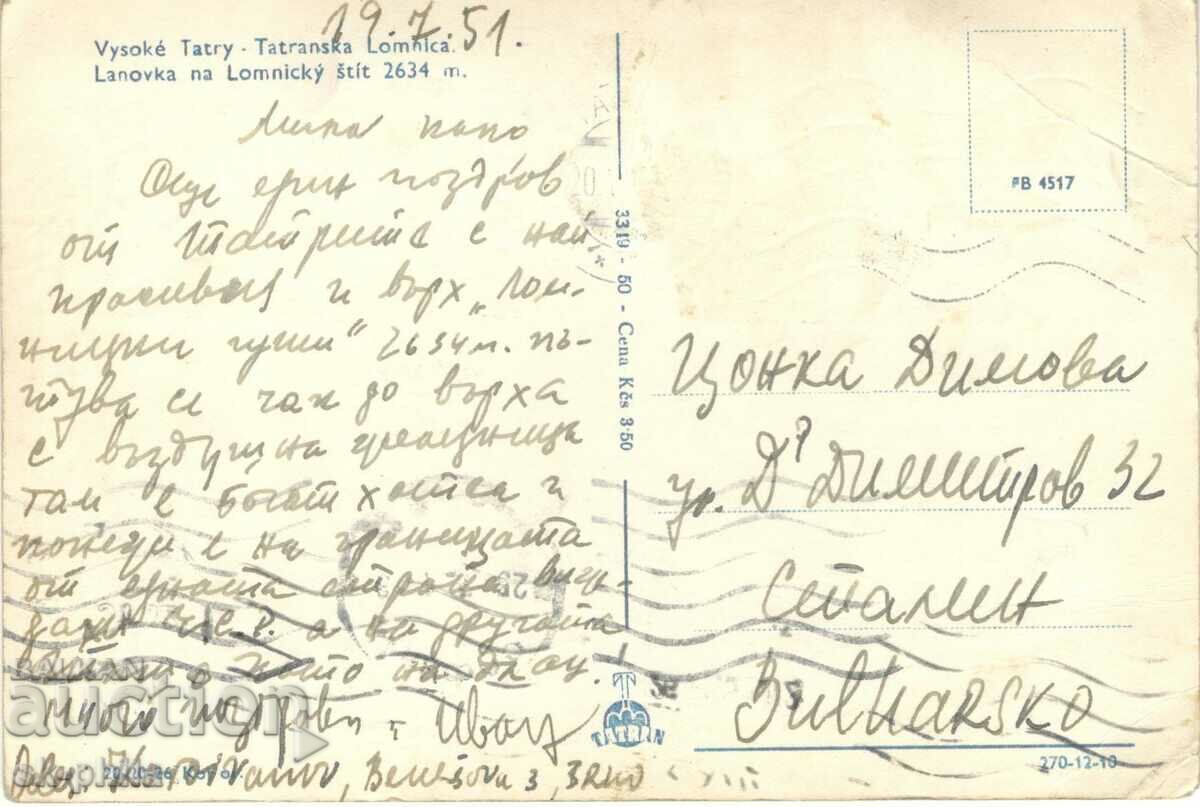 19.7.51.
Vysoké Tatry - Tatranská Lomnica.
Lanovka na Lomnický štít 2634 m.
Мила
Още един поздрав
от Татрите с най
красивия и връх „Лом-
нишки 2634 м. пъ-
тува се чак до върха
с въздушна
там е богат хотел и
понеже е на границата
от едната страна
Ч.С.Р. а на другата
като на длан.
Много поздрави - Иван
Ivanov, Benešova 3, Brno
3319 - 50 - Cena Kčs 3·50
FB 4517
Цонка Димова
ул. Др Димитров 32
Сталин
Bulharsko
TATRAN
270-12-10
auction